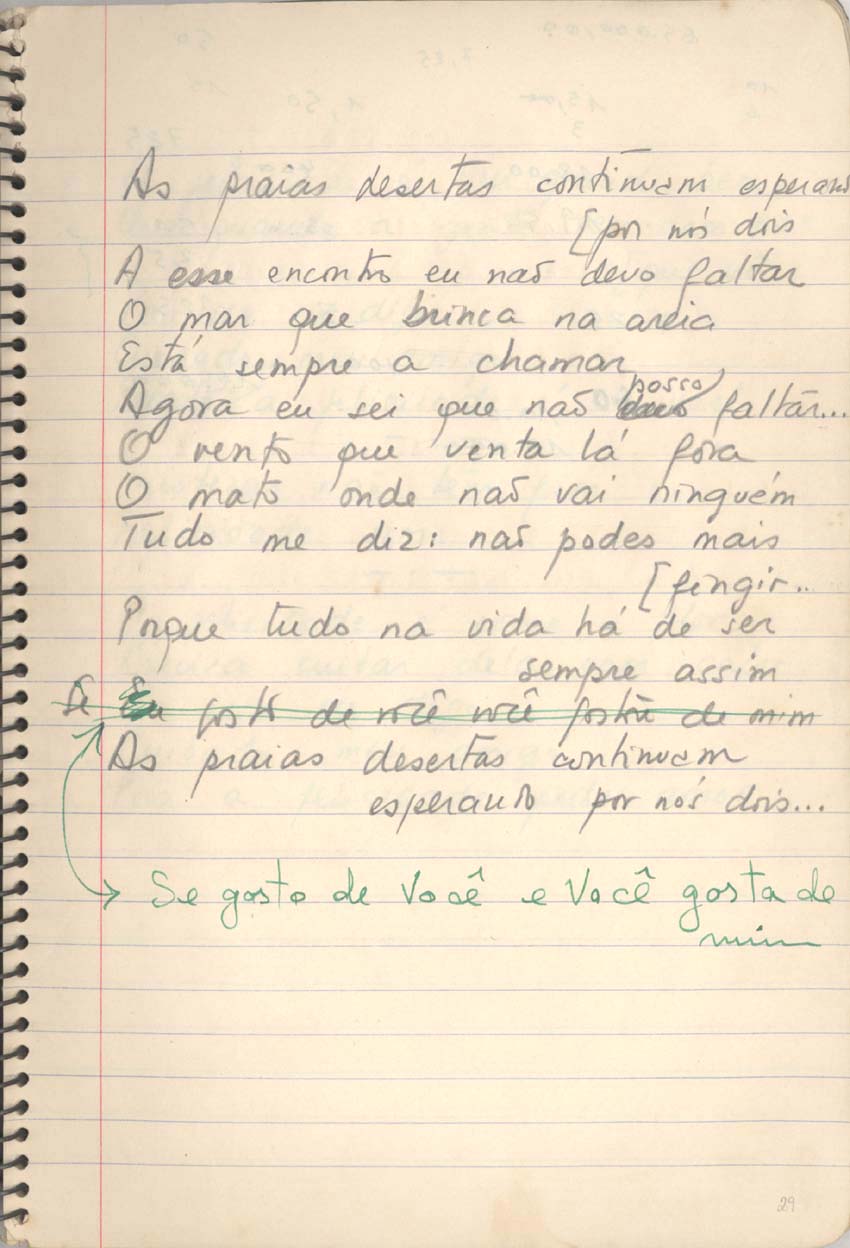 As praias desertas continuam esperando
[por nós dois
A esse encontro eu não devo faltar
O mar que brinca na areia
Está sempre a chamar
posso
Agora eu sei que não devo faltar...
O vento que venta lá fora
O mato onde não vai ninguém
Tudo me diz: não podes mais
[fingir...
Porque tudo na vida há de ser
sempre assim
Se Eu gosto de você você gosta de mim
As praias desertas continuam
esperando por nós dois...
Se gosto de Você e Você gosta de
mim
29